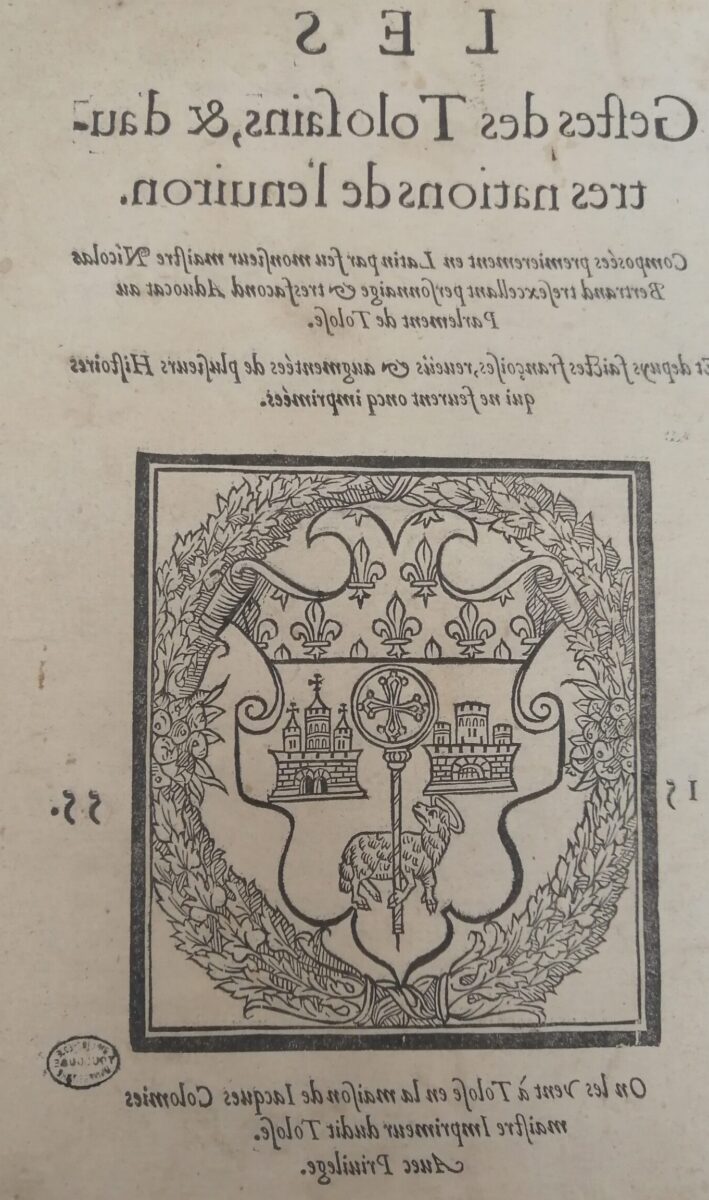 LES
Geſtes des Toloſains, & dau-
tres nations de l'enuiron.
Compoſées premierement en Latin par feu monſieur maiſtre Nicolas
Bertrand treſexcellant perſonnaige & treſfacond Aduocat au
Parlement de Toloſe.
Et depuys faictes françoiſes, reueüs & augmentées de pluſieurs Hiſtoires
qui ne feurent oncq imprimées.
15 55.
On les vent à Toloſe en la maiſon de Iacques Colomies
maiſtre Imprimeur dudit Toloſe.
Auec Priuilege.